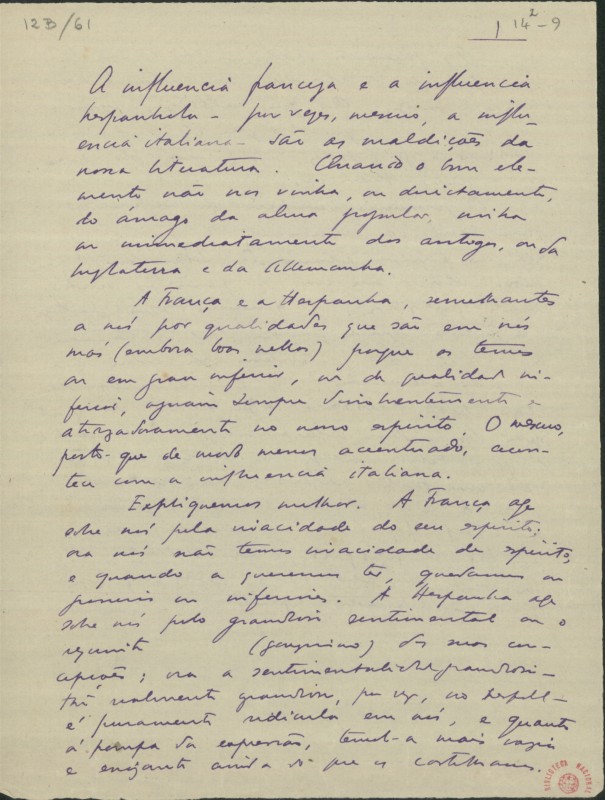 12B/61
1
14²-9
A influencia franceza e a influencia
hespanhola - por vezes, mesmo, a influ-
encia italiana - são as maldições da
nossa literatura. Quando o bom ele-
mento não nos vinha, ou directamente,
do ámago da alma popular, vinha
ou immediatamente dos antigos, ou da
Inglaterra e da Allemanha.
A França e a Hespanha, semelhantes
a nós por qualidades que são em nós
más (embora boas nellas) porque os temos
ou em grau inferior, ou de qualidade in-
ferior, agiram sempre
atrazadoramente no nosso espirito. O mesmo,
posto-que de modo menos accentuado, acon-
teceu com a influencia italiana.
Expliquemos melhor. A França age
sobre nós pela viacidade do seu espirito;
ora nós não temos viacidade de espirito,
e quando a queremos ter, quedamos ou
ou inferiores. A Hespanha age
sobre nós pelo grandioso sentimental ou o
requinte (gongorino) das suas con-
cepções; ora a sentimentalidade grandiosi-
realmente grandiosa, por vezes, no
é puramente ridicula em nós, e quanto
á pompa da expressão, temol-a mais vazia
e ainda do que os castelhanos.
BIBLIOTECA NACIONAL